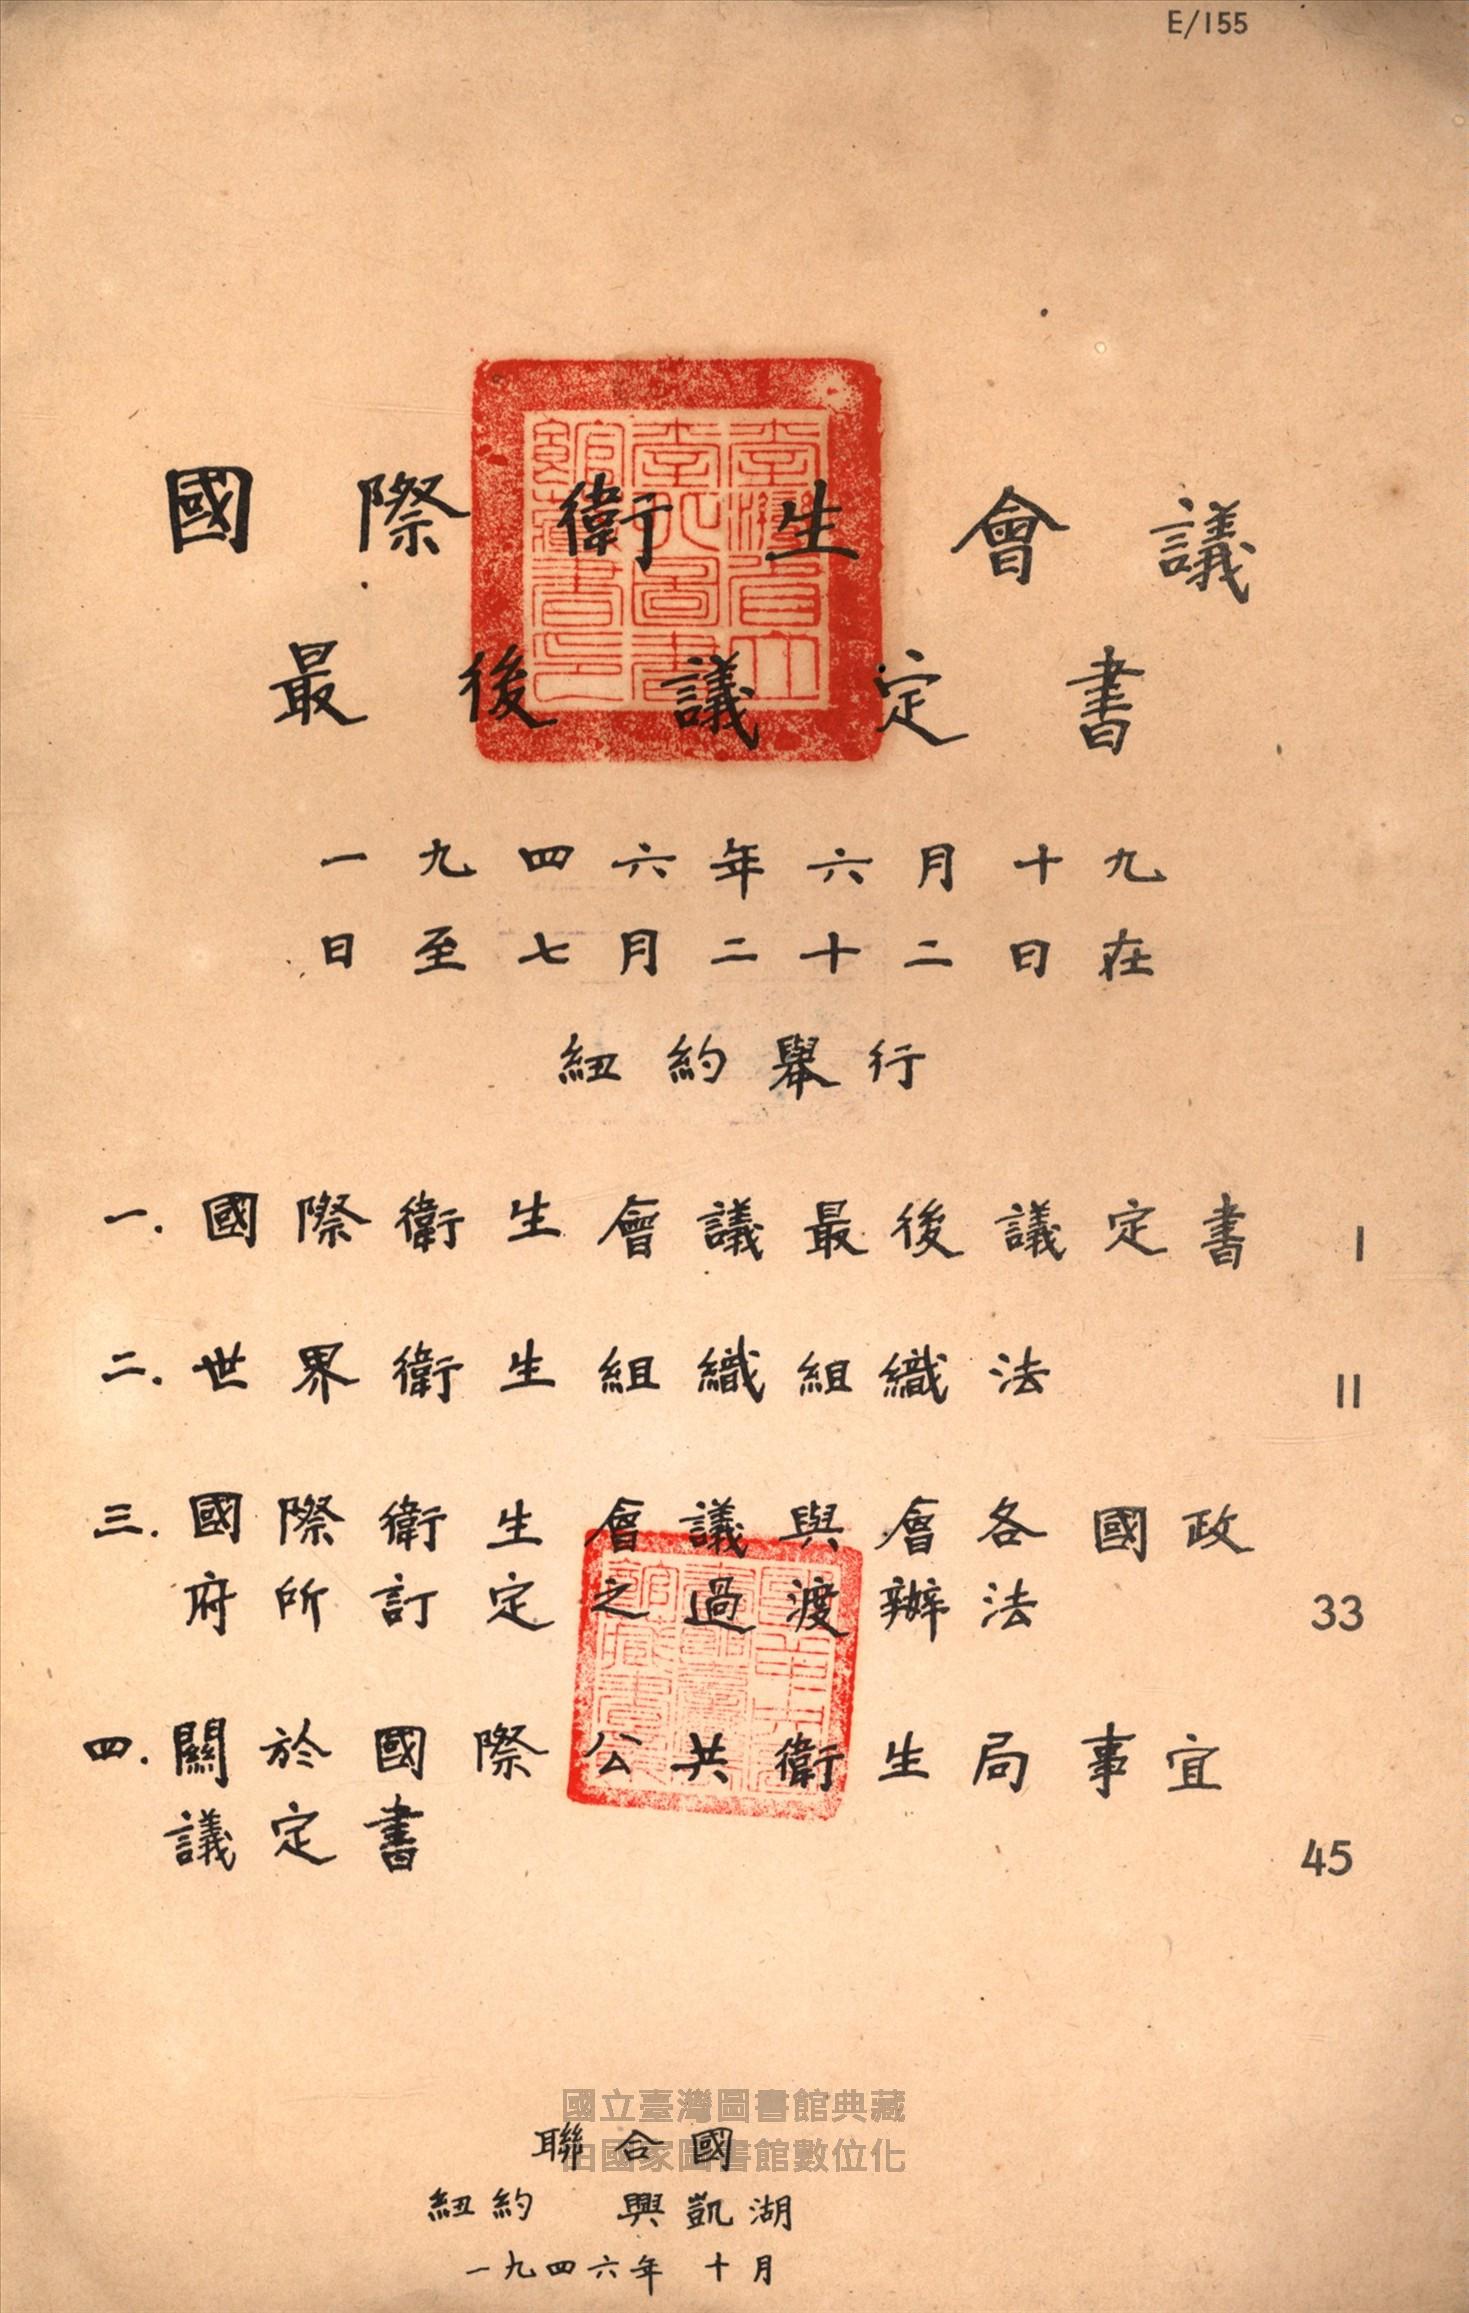 E/155
國際衛生會議
最後議定書
一九四六年六月十九
日至七月二十二日在
紐約舉行
一. 國際衛生會議最後議定書 1
二. 世界衛生組織組織法 11
三. 國際衛生會議與會各國政
府所訂定之過渡辦法 33
四. 關於國際公共衛生局事宜
議定書 45
國立臺灣圖書館典藏
由國家圖書館數位化
聯合國
紐約 興凱湖
一九四六年 十月
臺灣省立
臺北圖書
館藏書印